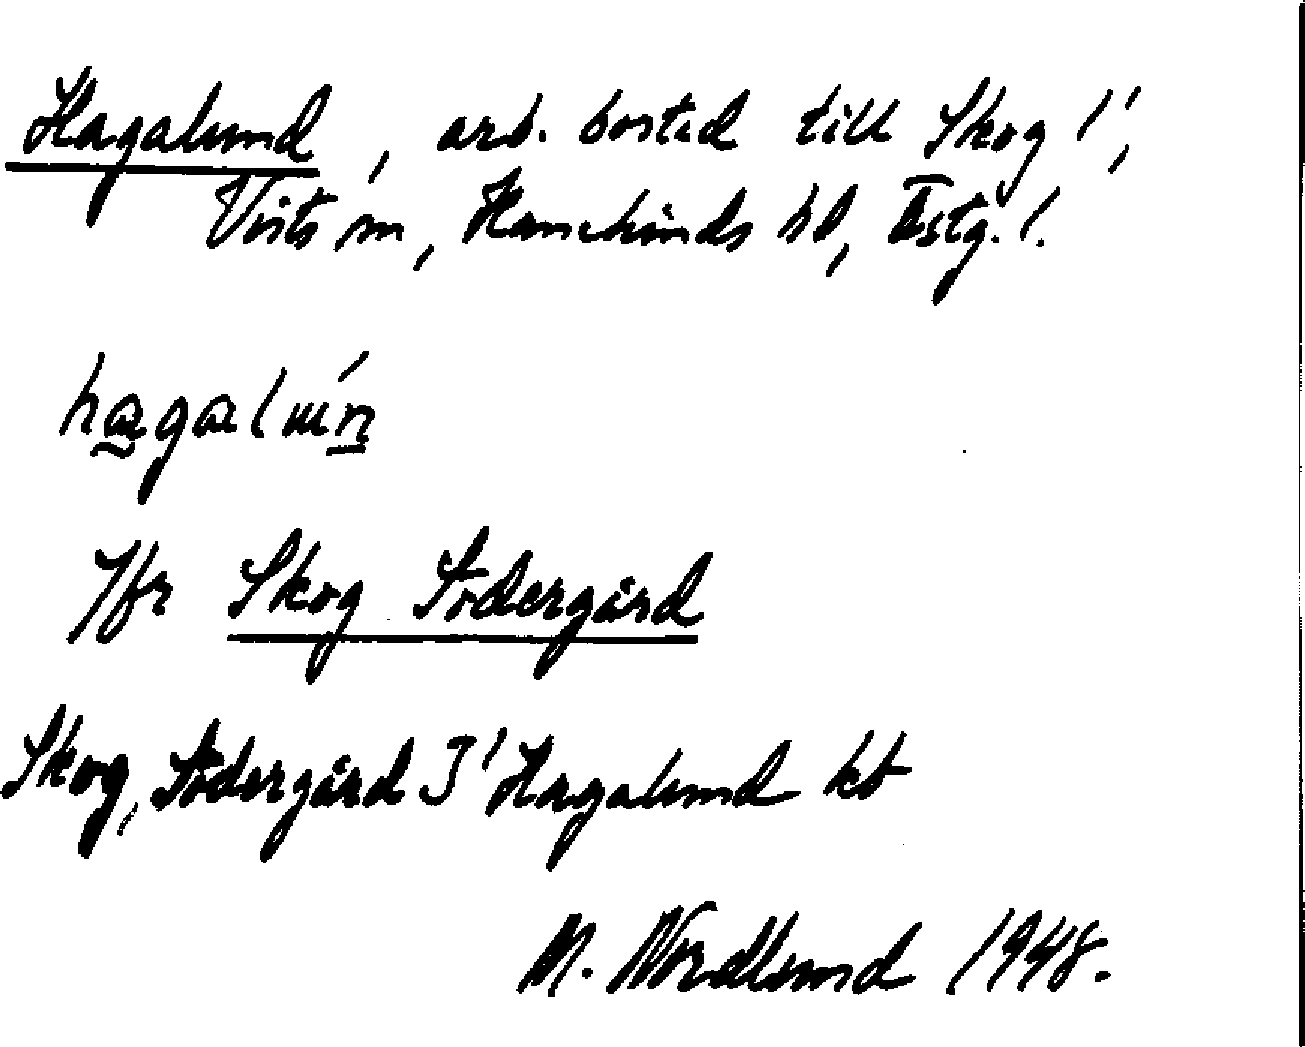 Hagalund, arb. bostad till Skog 1¹,
Vists sn, Hanekinds hd, Östg. l.
hagalun
Jfr Skog Södergård
Skog, Södergård I¹ Hagalund kb
M. Nordlund 1948.